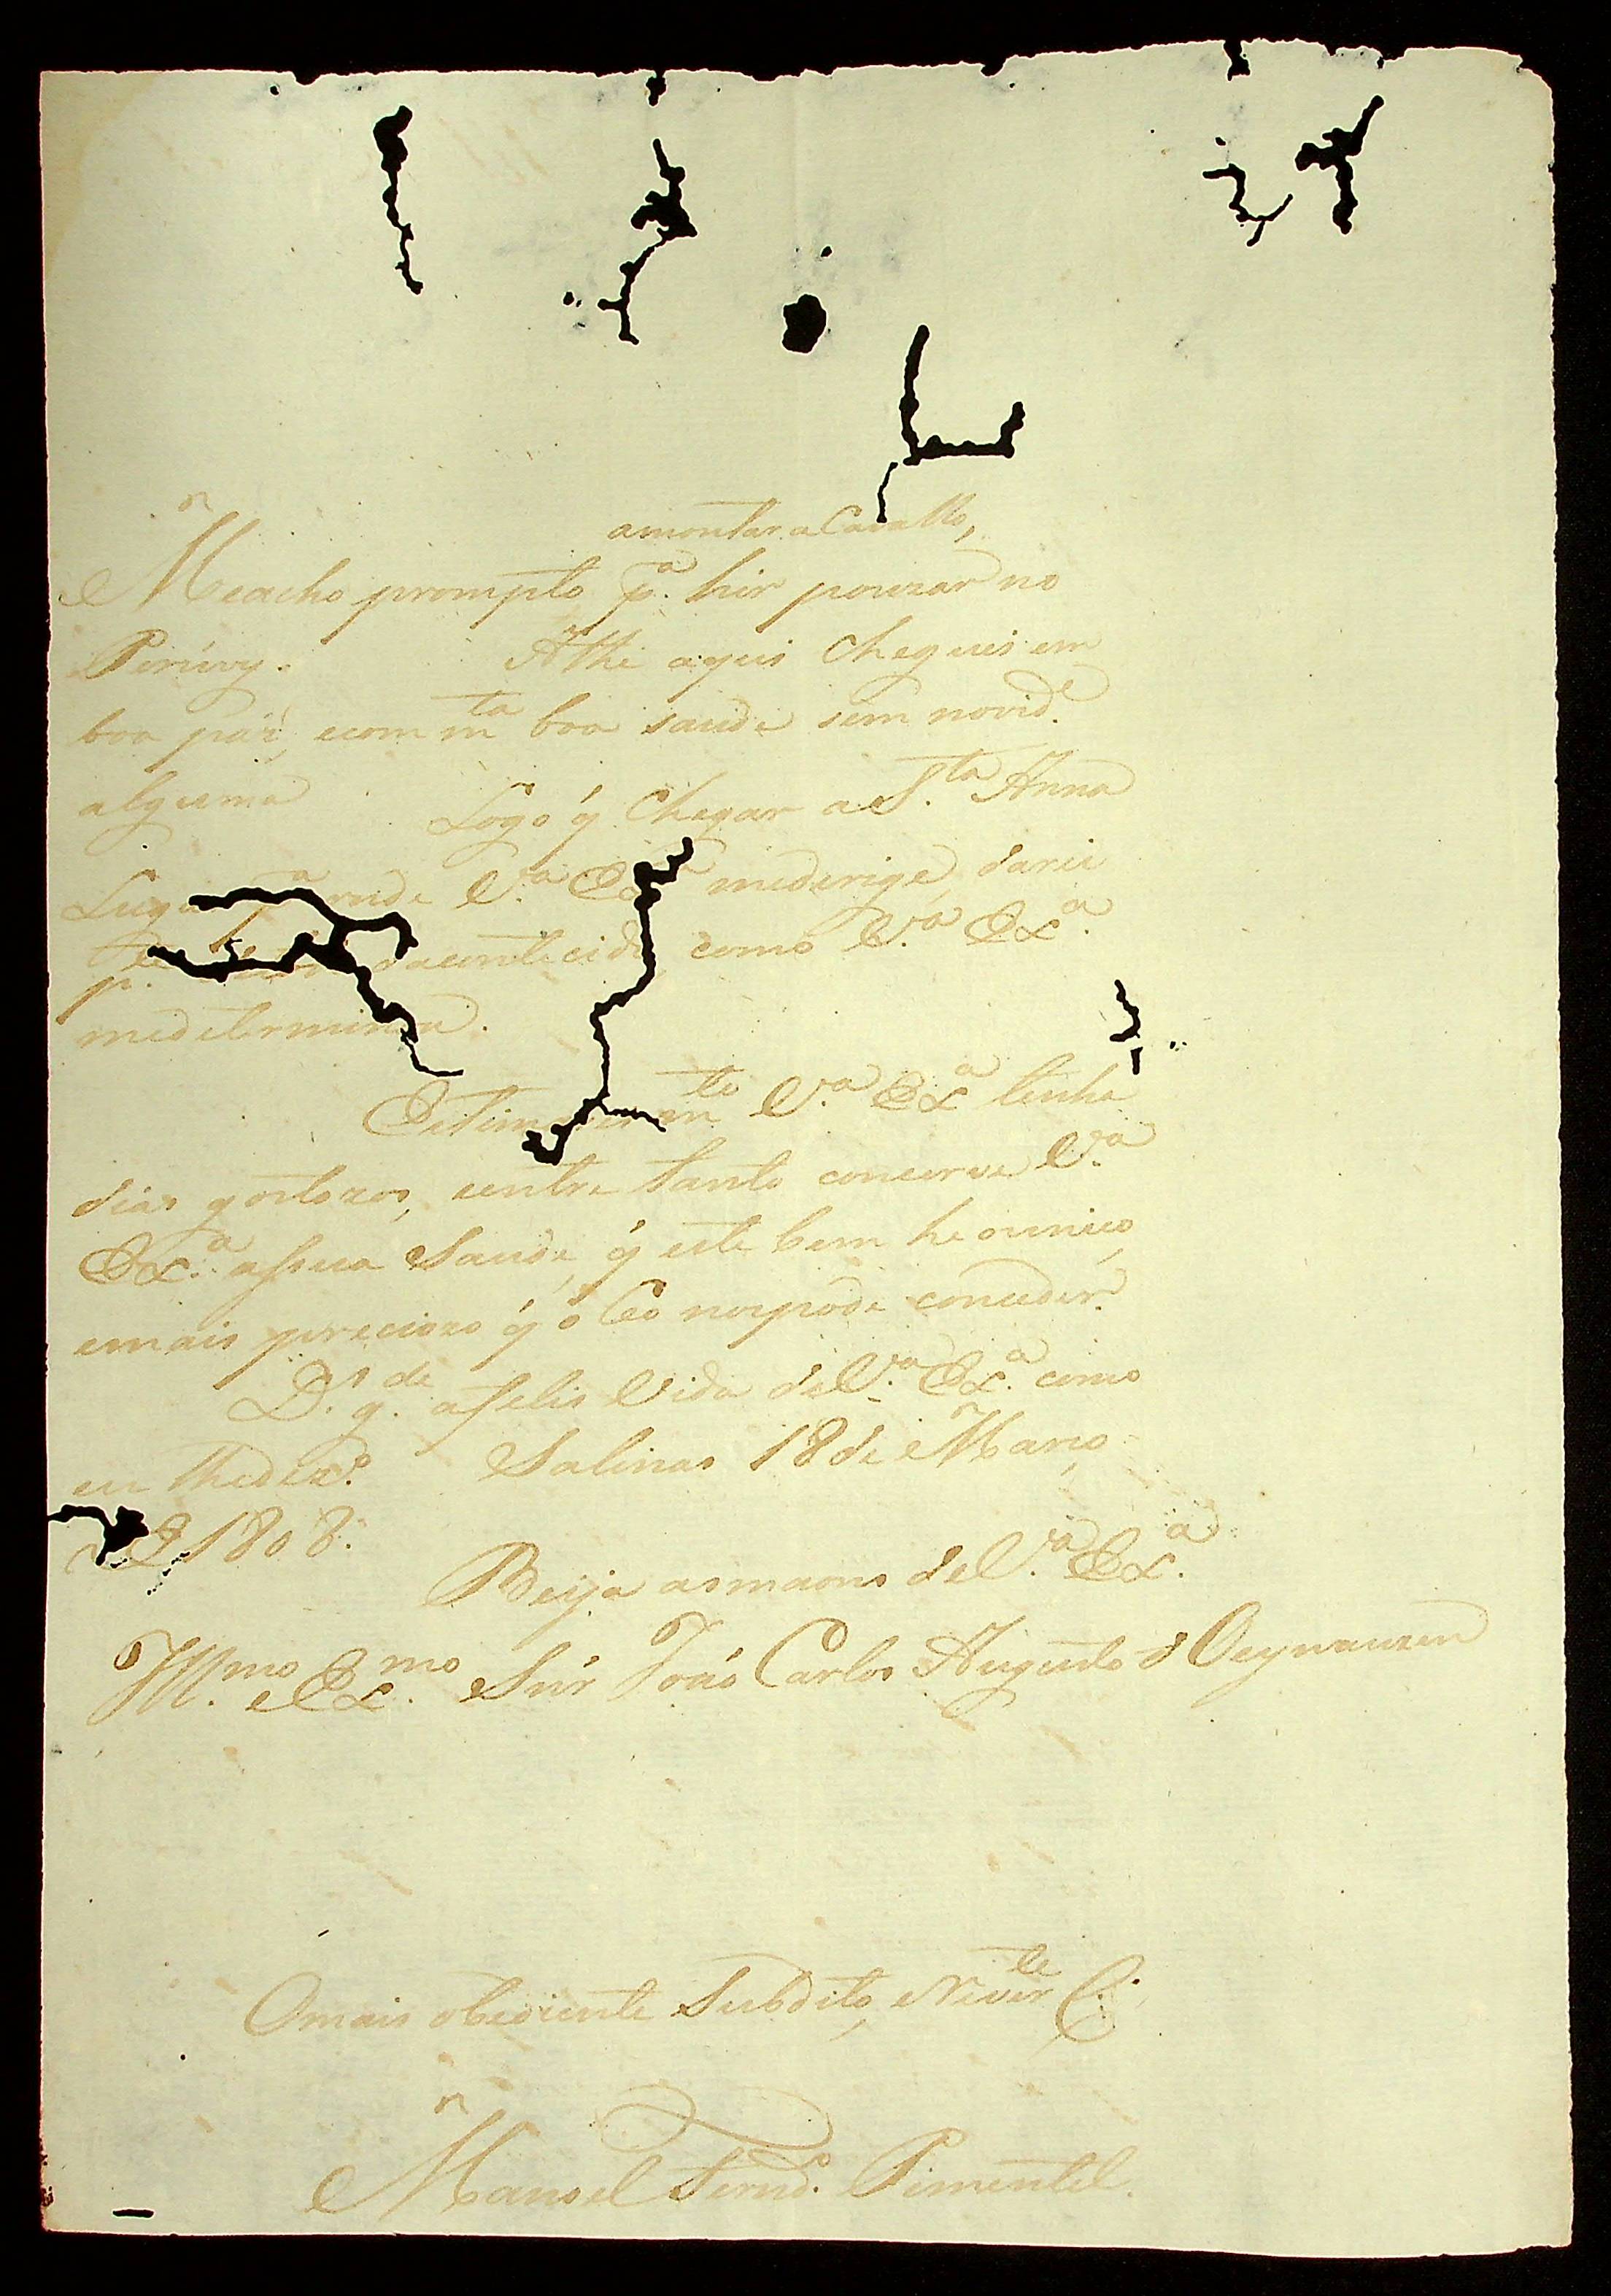 amontar a Cavallo,
Meacho prompto p.ª hir pouzar no
Athe aqui cheguei em
boa páz, ecom m.ta boa saude sem novid.e
alguma Logo q́ Chegar a S.ta Anna
V.ª Ex.ª mederige, darei
p.te acontecido, como V.ª Ex.ª
medetermina.
V.ª Ex.ª tenha
dias gostozos, eentre tanto concerve V.ª
Ex.ª aSua Saude, q́ este bem he ounico,
emais preciozo q́ ó Ceo nospode conceder.
D.s g.de afelis Vida deV.ª Ex.ª como
Salinas 18 de Março
1808.
Beija asmaons deV.ª Ex.ª
Ill.mo eEx.mo Snr̃ João Carlos Augusto d'Oeynauzen
Omais obediente Subdito,
Manoel Fernd. Pimentel.